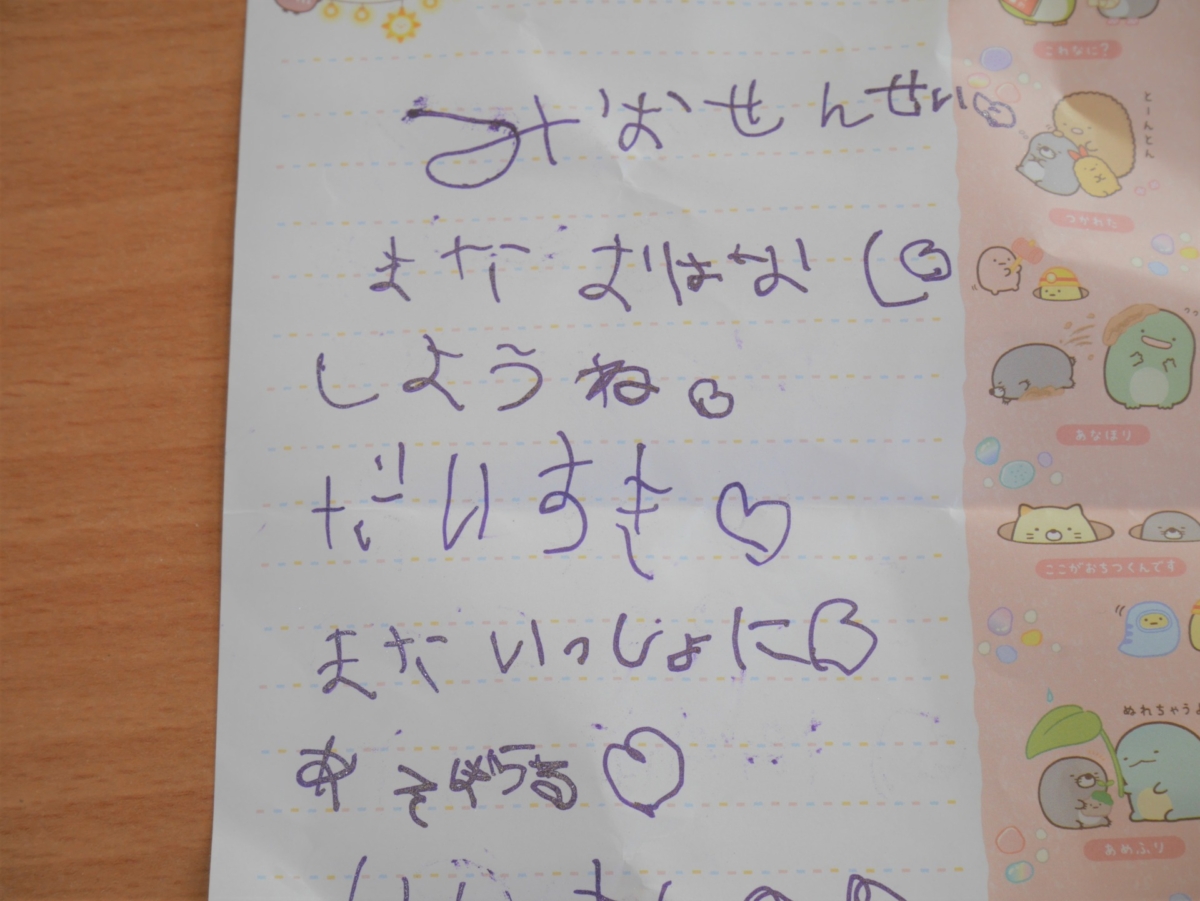 みなせんせい♡
またおはなし♡
しようね。
だいすき♡
またいっじょに♡
あそぼうね♡
これなに?
とーんとん
つかれた
あなほり
ここがおちつくんです
ぬれちゃうよ
あめふり